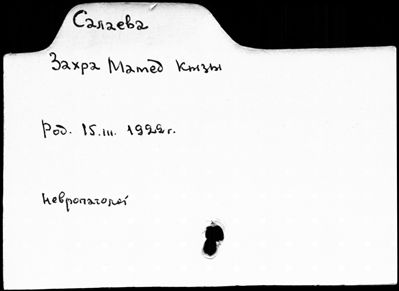 Салаева
Захра Мамед Кызы
Род. 15.III. 1922г.
невропатолог